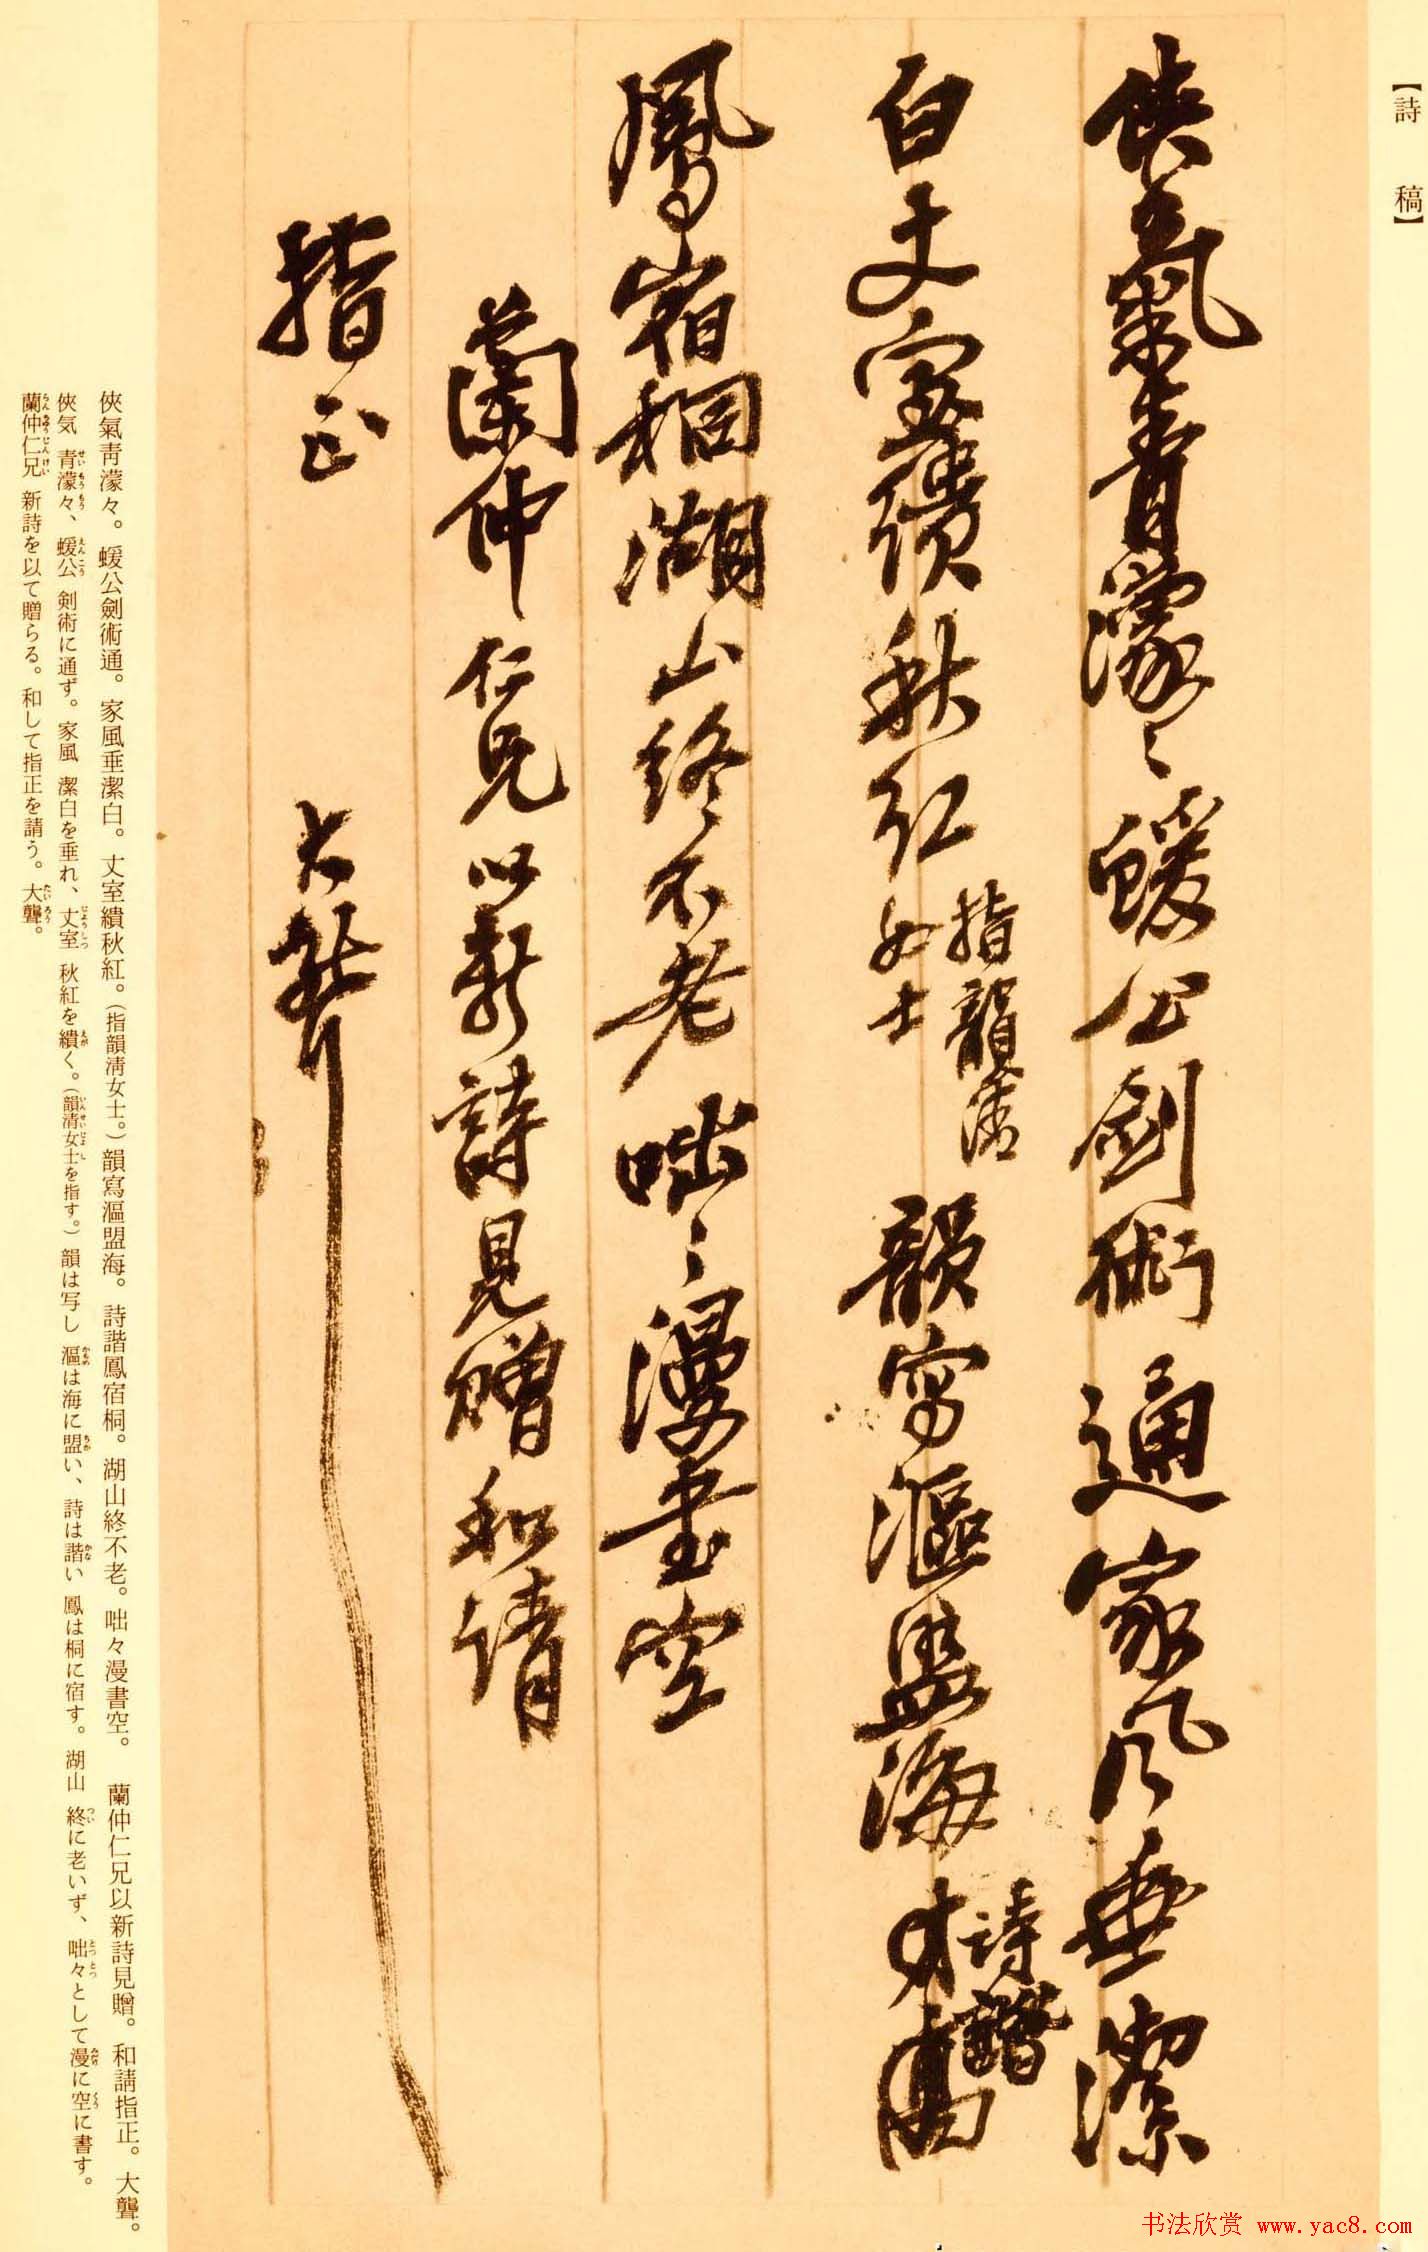 【詩稿】
俠氣青濛々蝯公劍術通家風垂潔
白丈室繢秋紅指韻清女士韻寫漚盟海詩諧
鳳宿桐湖山終不老咄々漫書空
蘭仲仁兄以新詩見贈和請
指正
大聾
俠氣靑濛々。蝯公劍術通。家風垂潔白。丈室繢秋紅。（指韻淸女士。）韻寫漚盟海。詩諧鳳宿桐。湖山終不老。咄々漫書空。　蘭仲仁兄以新詩見贈。和請指正。大聾。
俠気　青濛々、蝯公　剣術に通ず。家風　潔白を垂れ、丈室　秋紅を繢く。（韻清女士を指す。）韻は写し　漚は海に盟い、詩は諧い　鳳は桐に宿す。湖山　終に老いず、咄々として漫に空に書す。
蘭仲仁兄　新詩を以て贈らる。和して指正を請う。大聾。
书法欣赏 www.yac8.com